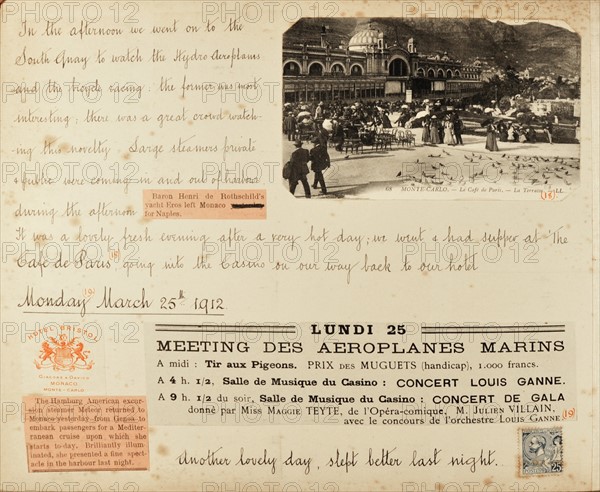 In the afternoon we went on to the
South Quay to watch the Hydro Aeroplanes
and the bicycle racing: the former was most
interesting; there was a great crowd watch-
ing this novelty Large steamers private
& public were coming in and out of harbour
during the afternoon
Baron Henri de Rothschild's
yacht Eros left Monaco
for Naples.
68 MONTE-CARLO. — Le Café de Paris. — La Terrasse. — LL.
(18)
It was a lovely fresh evening after a very hot day; we went & had supper at "The
Café de Paris" 18 going into the Casino on our way back to our hotel
Monday 19) March 25th 1912.
HOTEL BRISTOL
MONACO
MONTE-CARLO
LUNDI 25
MEETING DES AEROPLANES MARINS
A midi : Tir aux Pigeons, PRIX DES MUGUETS (handicap), 1.000 francs.
A 4 h. 1/2, Salle de Musique du Casino : CONCERT LOUIS GANNE.
A 9 h. 1/2 du soir, Salle de Musique du Casino : CONCERT DE GALA
donné par Miss MAGGIE TEYTE, de l'Opéra-comique, M. JULIEN VILLAIN,
avec le concours de l'orchestre LOUIS GANNE.
(19)
The Hamburg American excur-
sion steamer Meteor returned to
Monaco yesterday from Genoa to
embark passengers for a Mediter-
ranean cruise upon which she
starts to-day. Brilliantly illumi-
nated, she presented a fine spect-
acle in the harbour last night.
Another lovely day, slept better last night.
25